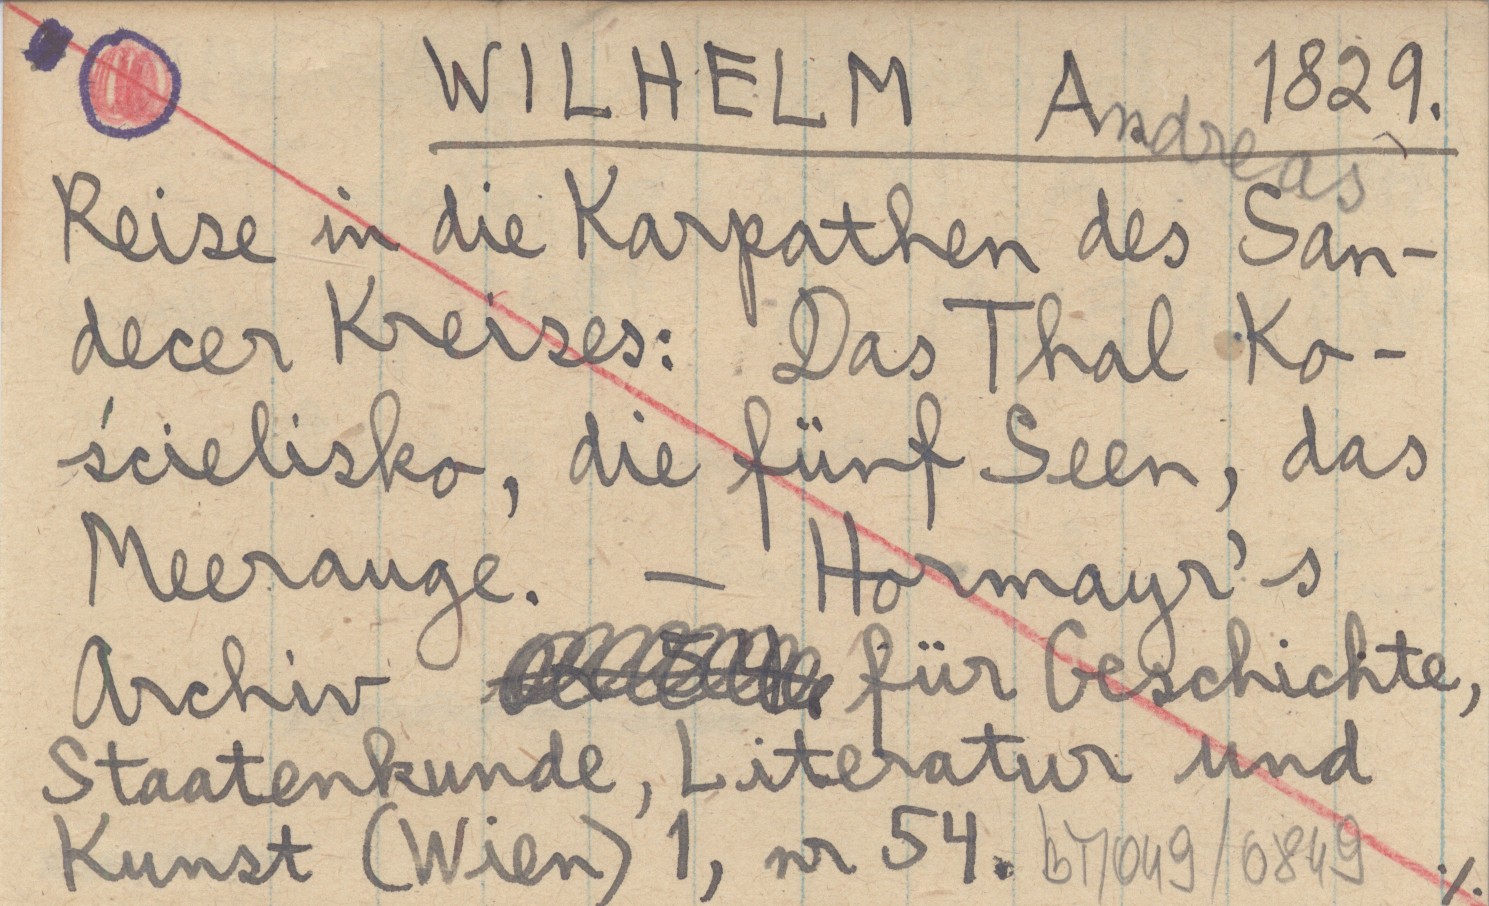 WILHELM Andreas 1829.
Reise in die Karpathen des San-
decer Kreises: Das Thal Ko-
ścielisko, die fünf Seen, das
Meerauge. — Hormayr's
Archiv für Geschichte,
Staatenkunde, Literatur und
Kunst (Wien) 1, nr 54. 049/0849 ./.